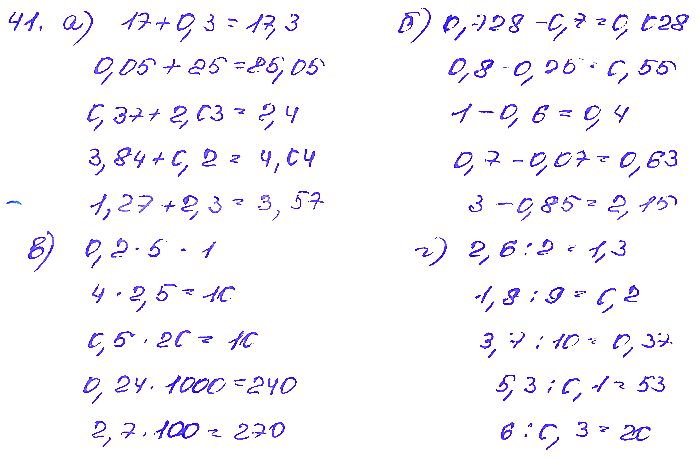 41. а) 17+0,3=17,3
0,05+25=25,05
0,37+2,03=2,4
3,84+0,2=4,04
1,27+2,3=3,57
б) 0,728-0,7=0,028
0,8-0,25=0,55
1-0,6=0,4
0,7-0,07=0,63
3-0,85=2,15
в) 0,2·5=1
4·2,5=10
0,5·20=10
0,24·1000=240
2,7·100=270
г) 2,6:2=1,3
1,8:9=0,2
3,7:10=0,37
5,3:0,1=53
6:0,3=20